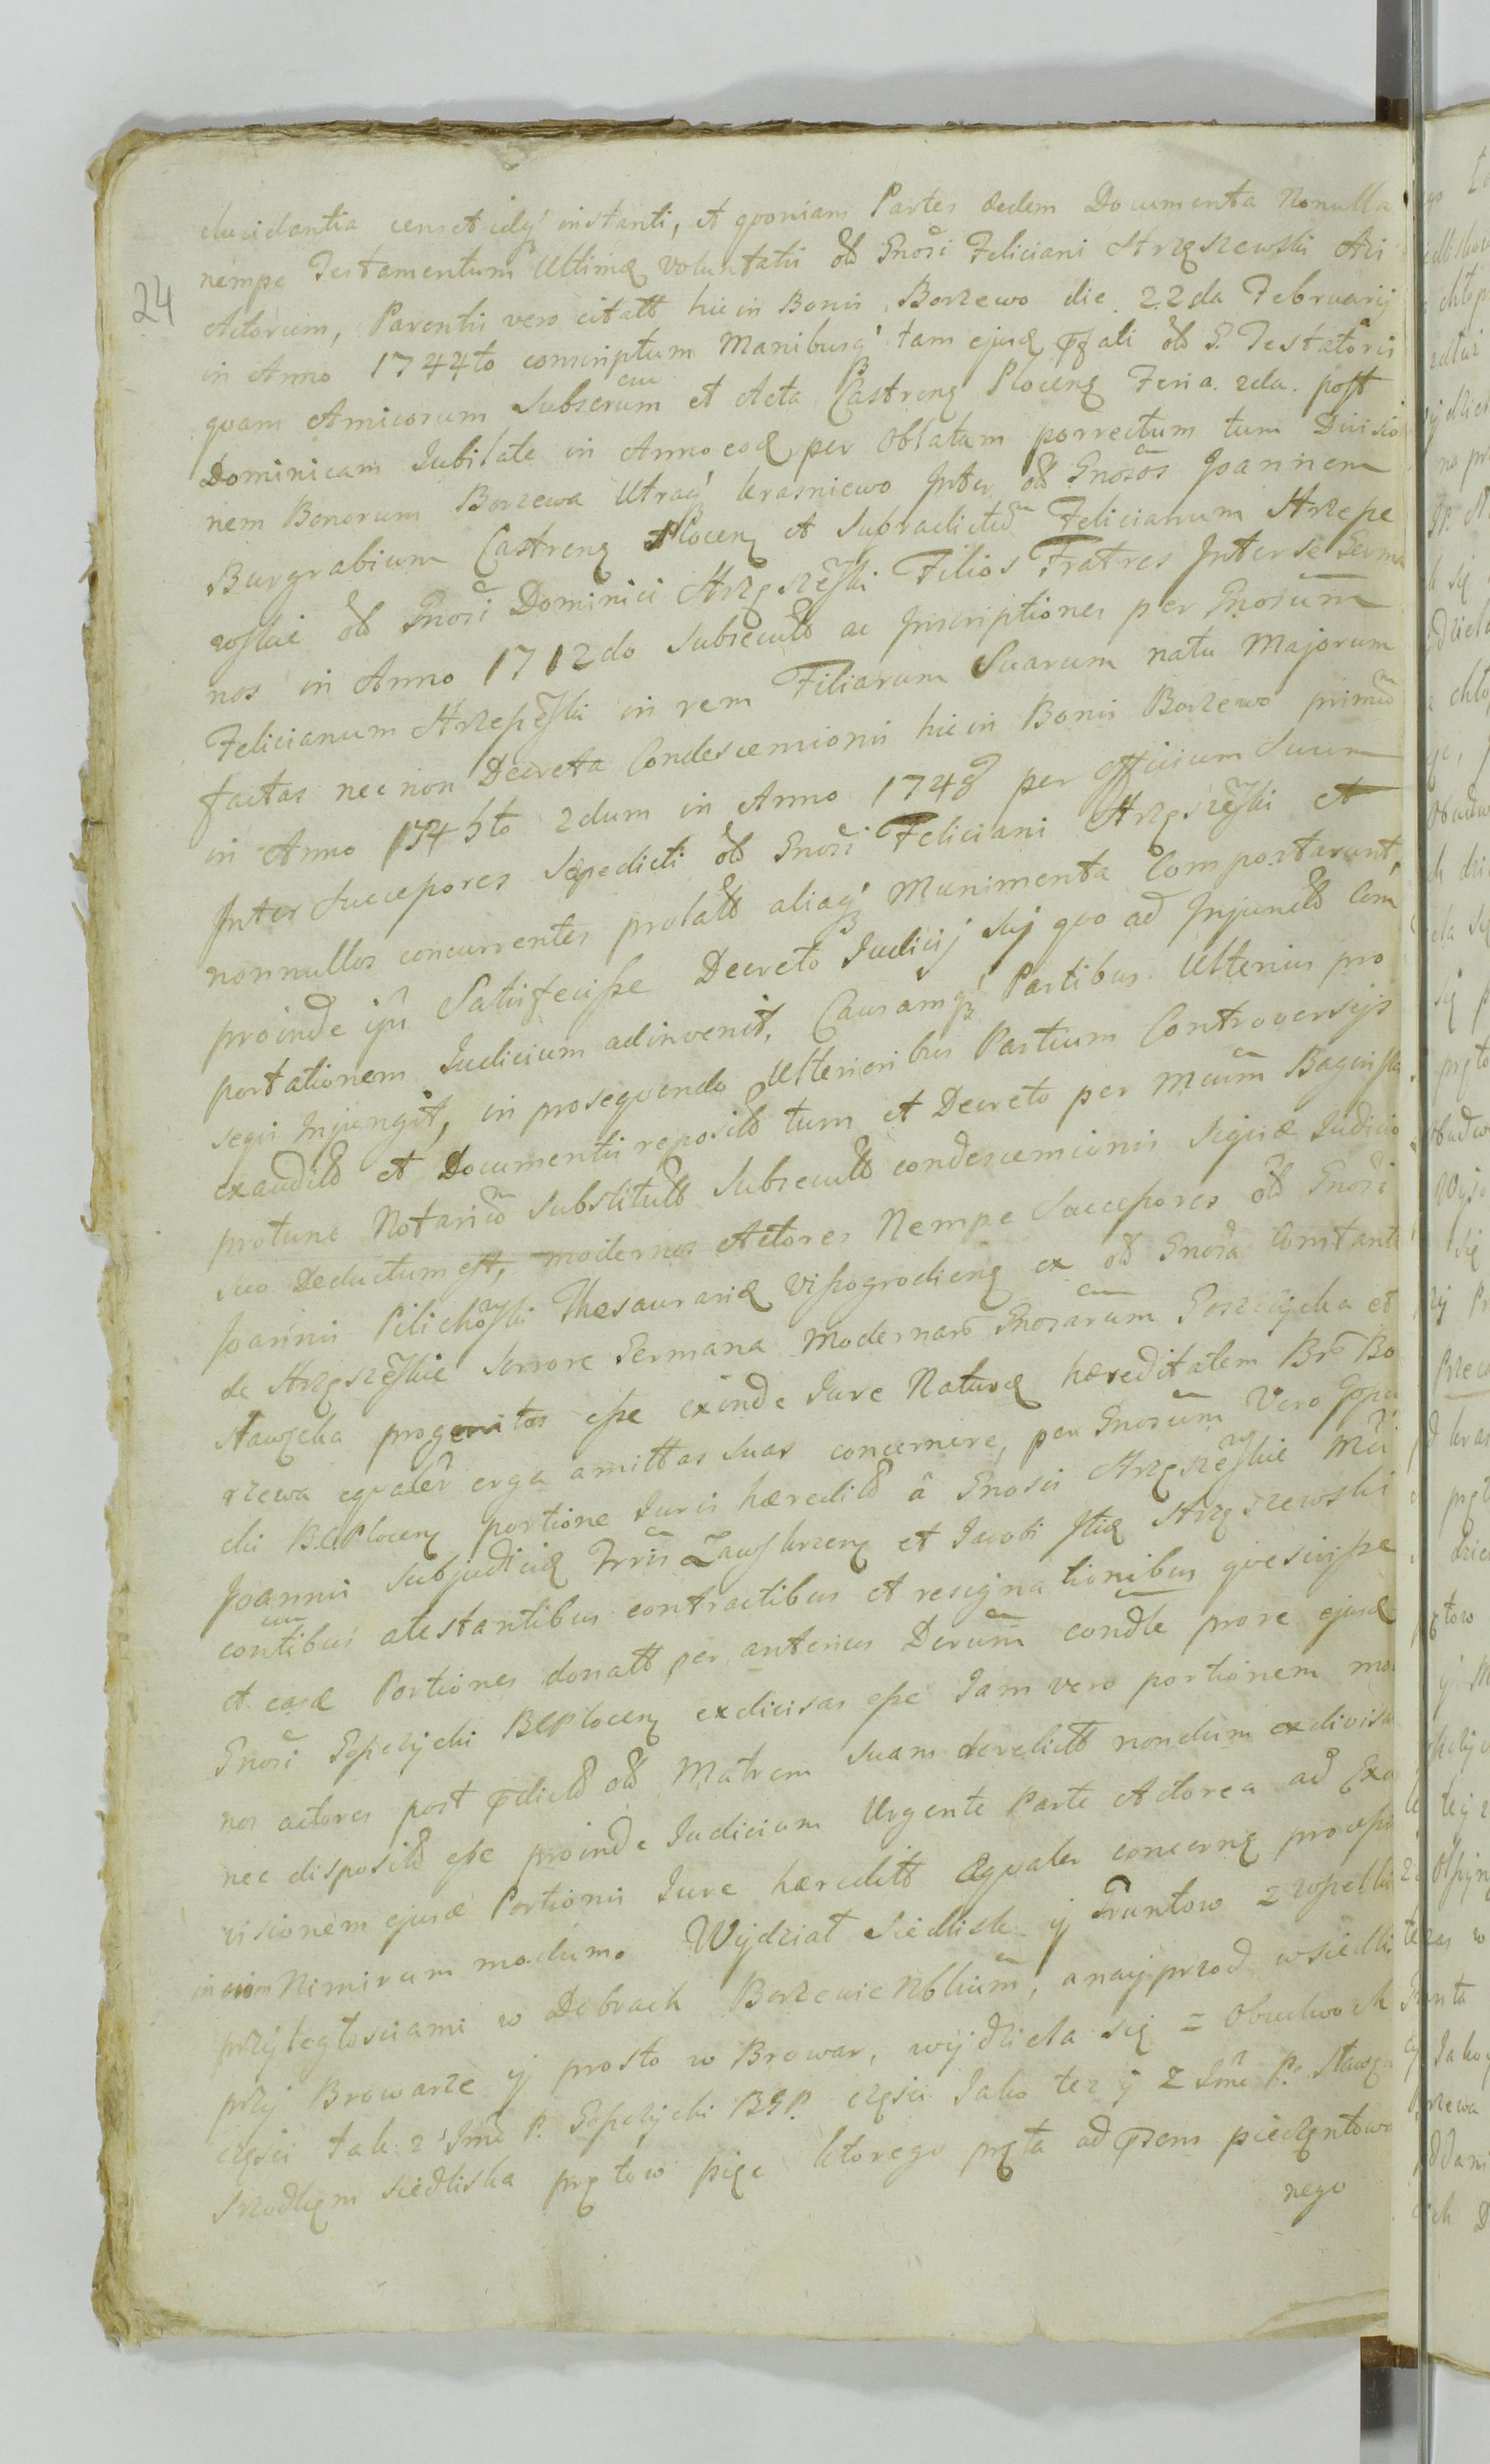 elucidantia censet idq́ instanti, et qvoniam Partes ædem Documenta Nonulla
nempe Testamentum Ultimæ voluntatis olȝ Gnosi Feliciani Strzeszewski Avi
24
Actorum, Parentis vero citatt hic in Bonis Borzewo die 22da Februarij
in Anno 1744to conscriptum Manibusq́ tam ejusd p̄fati olȝ G. Testatoris
qvam Amicorum Subscrum et Acta Castren Plocen Feria 2da post
Dominicam Jubilate in Anno eod per Oblatam porrectum tum Divisio
nem Bonorum Borzewa Utraq́ Krasniewo Inter olȝ Gnosos Joannem
Burgrabium Castren Plocen et Supradictū Felicianum Strzepe
wskie olȝ Gnosi Dominici Strzeszeski Filios Fratres Inter se Germa
nos in Anno 1712do Subsecutȝ ac Inscriptiones per Gnosum
Felicianum Strzepeski in rem Filiarum Suarum natu Majorum
factas nec non Decreta Condescensionis hic in Bonis Borzewo primū
in Anno 1745to 2dum in Anno 1748 per Officium Suum
Inter Successores Sæpedicti olȝ Gnosi Feliciani Strzeszeski et
nonnullos concurrentes prolatȝ aliaq́ Munimenta Comportarunt,
proinde ijs Satisfecisse Decreto Judicij Sui qvo ad Injunctȝ Com
portationem Judicium adinvenit, Causamq́ Partibus Ulterius pro
seqvi Injungit, in proseqvendo Ulterioribus Partium Controversijs
exauditȝ et Documentis repositȝ tum et Decreto per Mcum Bagiński
protunc Notariū Substitutȝ Subsecutȝ condescensionis Siqvid Judicio
suo Deductum est, modernos Actores Nempe Successores olȝ Gnosi
Joannis Pilichoski Thesaurariæ Wissogrodien ex olȝ Gnosa Constant
de Strzeszeskie Sorore Germana Modernarȝ Gnosarum Goszczycka et
Stawska progenitos esse exinde Jure Naturæ hæreditatem Brȝ Bo
rzewa eqvaler erga amittas suas concernere, per Gnosum Vero Gosz
cki BGPlocen portione Juris hæreditȝ â Gnosis Strzeszeskie Mcī
Joannis Subjudicis Trris Zawskrzen et Jacobi Strzeszewski
contibus atestantibus contractibus et resignationibus qvesivisse
et easd Portiones donatt per anterius Derum condle pro re ejusd
Gnosi Goszczycki BGPlocen exdivisas esse Jam vero portionem mo
nos actores post p̄dictȝ olȝ Matrem suam derelictt nondum exdivisa
nec dispositȝ esse proinde Judicium Urgente Parte Actorea ad Exa
visionem ejusd Portionis Jure hæreditt Æqvaler concern processi
in eum Nimirum modum. Wydział Siedlisk y Gruntow z wszelki
przyległosciami w Dobrach Borzewie Nblium, a nayprzod w siedlis
przy Browarze y prosto w Browar, wydziela się z Obudwoch
częsci tak z Jmc P. Goszczycki BGP. częsci Jako tez y z Jmc P. Stawsk
Srzodkiem siedliska prętow pięc ktorego pręta ad p̄sens pieczętowa
nego